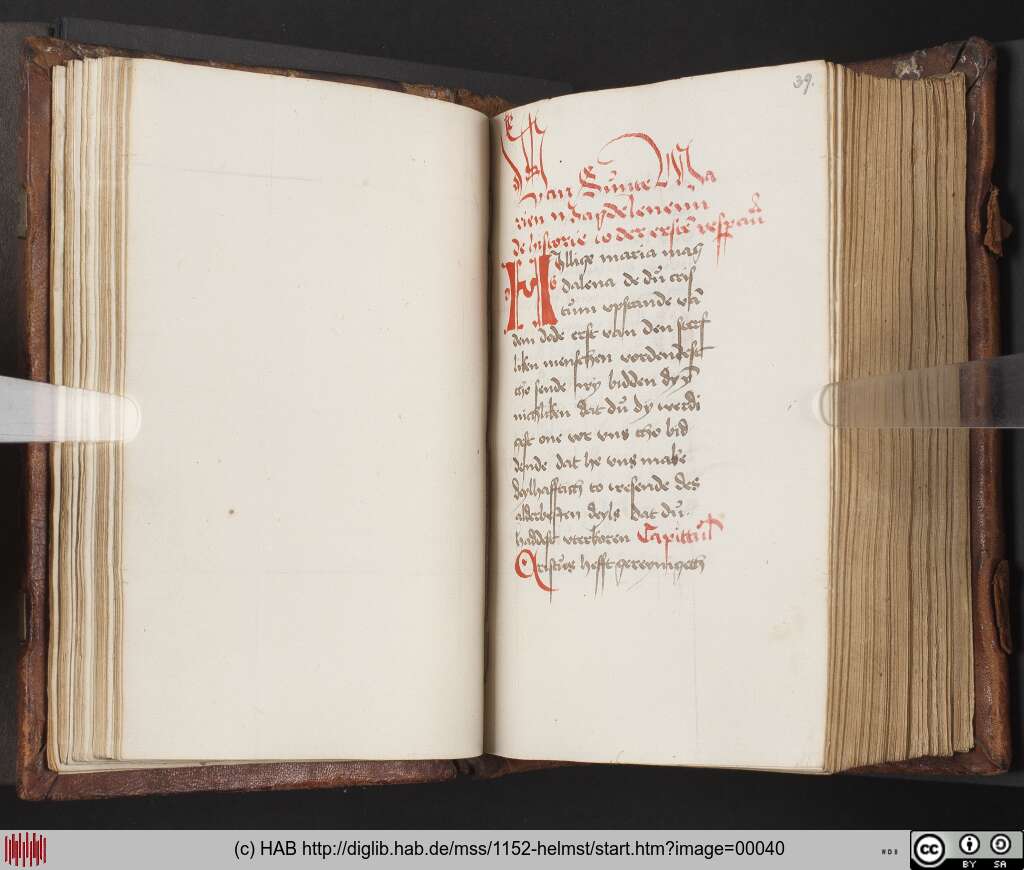 39.
Van Sunte Ma
rien magdelenenn
de historie to der erstē vesperū
Hillige maria mag
dalena de du cris
tum upstande vā
dem dode erst vam den sterf
liken menschen vordendest
tho sende wy bidden dy
nichliken dat du dy werdi
gest one vor vns tho bid
dende dat he vns make
deylhafftich to wesende des
alderbesten deyls dat du
haddest vterkoren Capittul
Cristus hefft gereynigeth
(c) HAB http://diglib.hab.de/mss/1152-helmst/start.htm?image=00040
cc BY SA